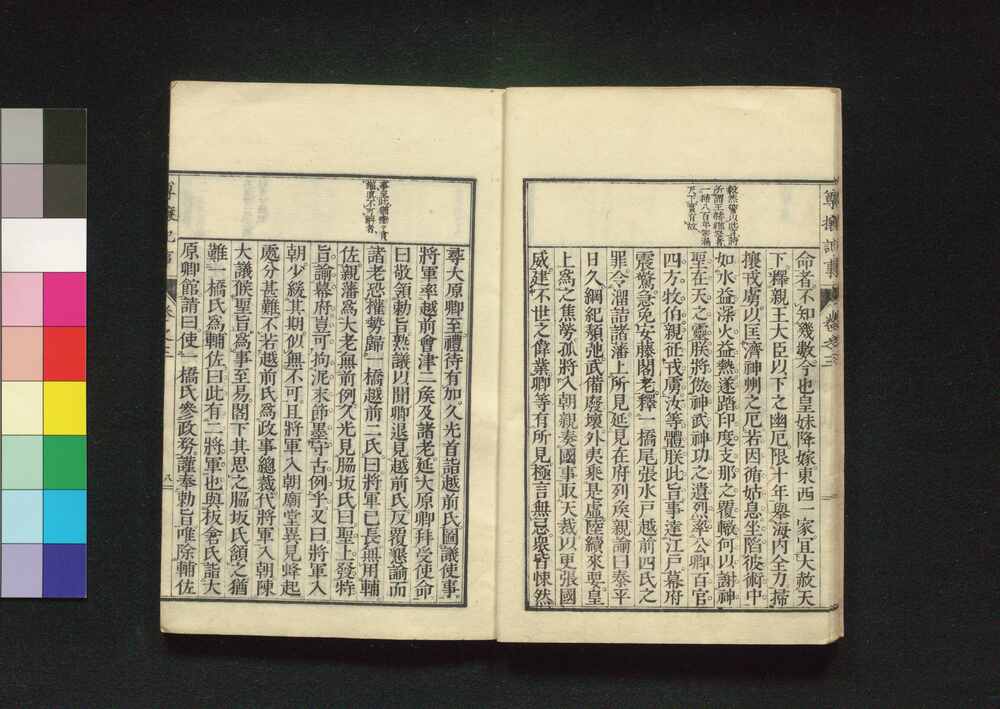 命者不知幾數今也皇妹降嫁東西一家宜大赦天
下釋親王大臣以下之幽厄限十年擧海内全力掃
攘戎虜以匡濟神州之厄若因循姑息坐陷彼術中
如水益深火益熱遂踏印度支那之覆轍何以謝神
聖在天之靈朕將倣神武神功之遺烈率公卿百官
四方牧伯親征戎虜汝等體朕此旨事達江戸幕府
震驚急免安藤閣老釋一橋尾張水戸越前四氏之
罪令溜詰諸藩上所見延見在府列矦親諭曰泰平
日久綱紀頽弛武備廢壞外夷乘是虛陸續來要皇
上爲之焦勞孤將入朝親奏國事取天裁以更張國
威建不世之偉業卿等有所見極言無忌衆皆悚然
尊攘紀事
卷之三
八
尋大原卿至禮待有加久光首詣越前氏圖議使事
將軍率越前會津二矦及諸老延大原卿拜受使命
曰敬領勅旨熟議以聞卿退見越前氏反覆懇諭而
諸老恐權勢歸一橋越前二氏曰將軍已長無用輔
佐親藩爲大老無前例久光見脇坂氏曰聖上發特
旨諭幕府豈可拘泥末節墨守古例乎又曰將軍入
朝少緩其期似無不可且將軍入朝廟堂異見蜂起
處分甚難不若越前氏爲政事總裁代將軍入朝陳
大議候聖旨爲事至易閣下其思之脇坂氏頷之猶
難一橋氏爲輔佐曰此有二將軍也與板倉氏詣大
原卿館請曰使一橋氏參政務謹奉勅旨唯除輔佐